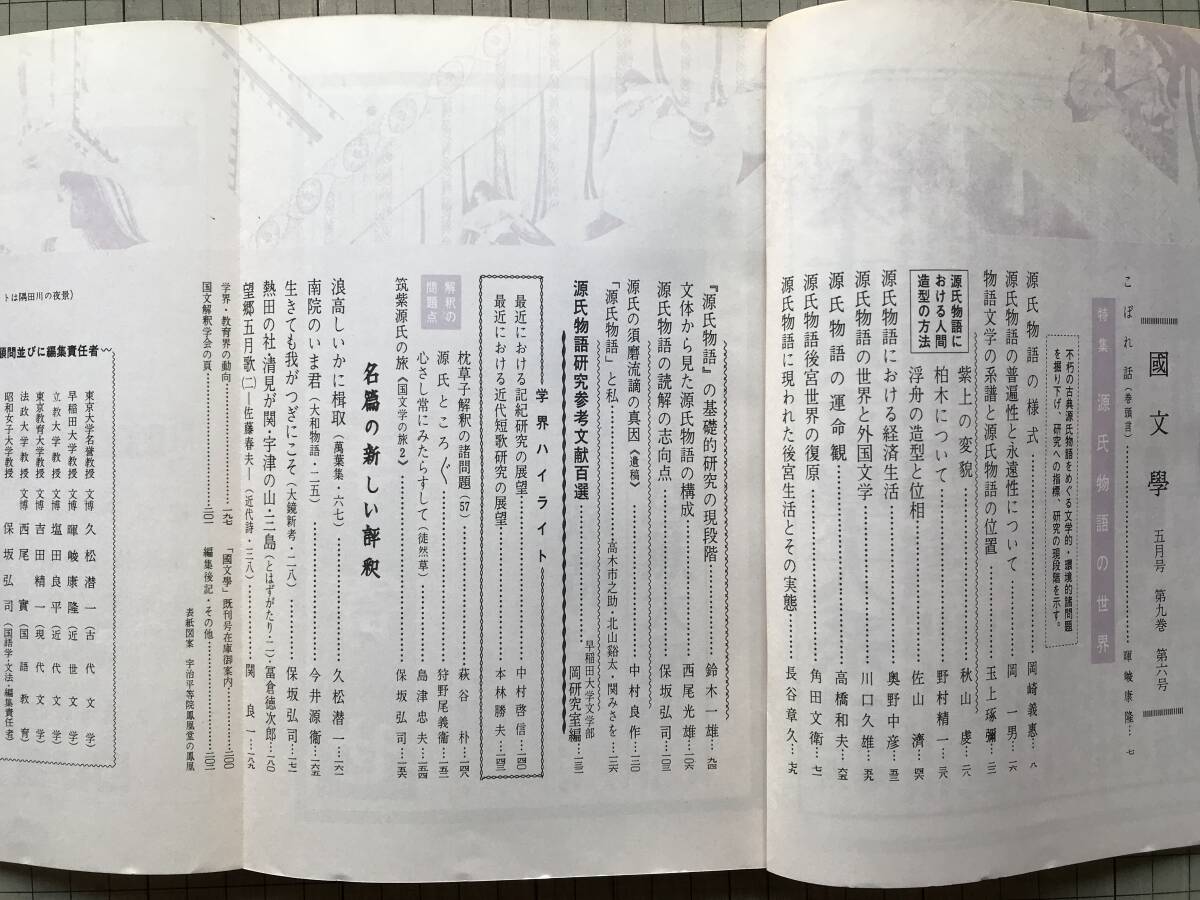 國文學　五月号　第九巻　第六号
こぼれ話（巻頭言）……暉峻康隆…七
特集　源氏物語の世界
不朽の古典源氏物語をめぐる文学的・環境的諸問題
を掘り下げ、研究への指標、研究の現段階を示す。
源氏物語の様式……岡崎義惠…八
源氏物語の普遍性と永遠性について……岡一男…一六
物語文学の系譜と源氏物語の位置……玉上琢彌…二三
源氏物語における人間造型の方法
紫上の変貌……秋山虔…二八
柏木について……野村精一…三八
浮舟の造型と位相……佐山濟…四六
源氏物語における経済生活……奥野中彦…五三
源氏物語の世界と外国文学……川口久雄…五九
源氏物語の運命観……高橋和夫…六五
源氏物語後宮世界の復原……角田文衛…七一
源氏物語に現われた後宮生活とその実態……長谷章久…七九
『源氏物語』の基礎的研究の現段階……鈴木一雄…九四
文体から見た源氏物語の構成……西尾光雄…一〇六
源氏物語の読解の志向点……保坂弘司…一〇三
源氏の須磨流謫の真因《遺稿》……中村良作…一一〇
「源氏物語」と私……高木市之助　北山谿太・関みさを…一二六
源氏物語研究参考文献百選……早稲田大学文学部岡研究室編…一三一
学界ハイライト
最近における記紀研究の展望……中村啓信…一四〇
最近における近代短歌研究の展望……本林勝夫…一四三
解釈の問題点
枕草子解釈の諸問題（57）……萩谷朴…一四六
源氏ところ〴〵……狩野尾義衞…一五一
心さし常にみたらすして（徒然草）……島津忠夫…一五四
筑紫源氏の旅《国文学の旅2》……保坂弘司…一五六
名篇の新しい評釈
浪高しいかに楫取（萬葉集・六七）……久松潜一…一六一
南院のいま君（大和物語・二五）……今井源衞…一六五
生きても我がつぎにこそ（大鏡新考・二八）……保坂弘司…一七一
熱田の社・清見が関・宇津の山・三島（とはずがたり・二）・冨倉徳次郎…一八〇
望郷五月歌（二）―佐藤春夫―（近代詩・三八）……関良一…一八九
学界・教育界の動向……一九七
国文解釈学会の頁……二〇一
「國文學」既刊号在庫御案内……二〇〇
編集後記・その他……二〇三
表紙図案　宇治平等院鳳凰堂の鳳凰
トは隅田川の夜景）
顧問並びに編集責任者
東京大学名誉教授　文博　久松潜一（古代文学）
早稲田大学教授　文博　暉峻康隆（近世文学）
立教大学教授　文博　塩田良平（近代文学）
東京教育大学教授　文博　吉田精一（現代文学）
法政大学教授　文博　西尾實（国語教育）
昭和女子大学教授　保坂弘司（国語学・文法・編集責任者）